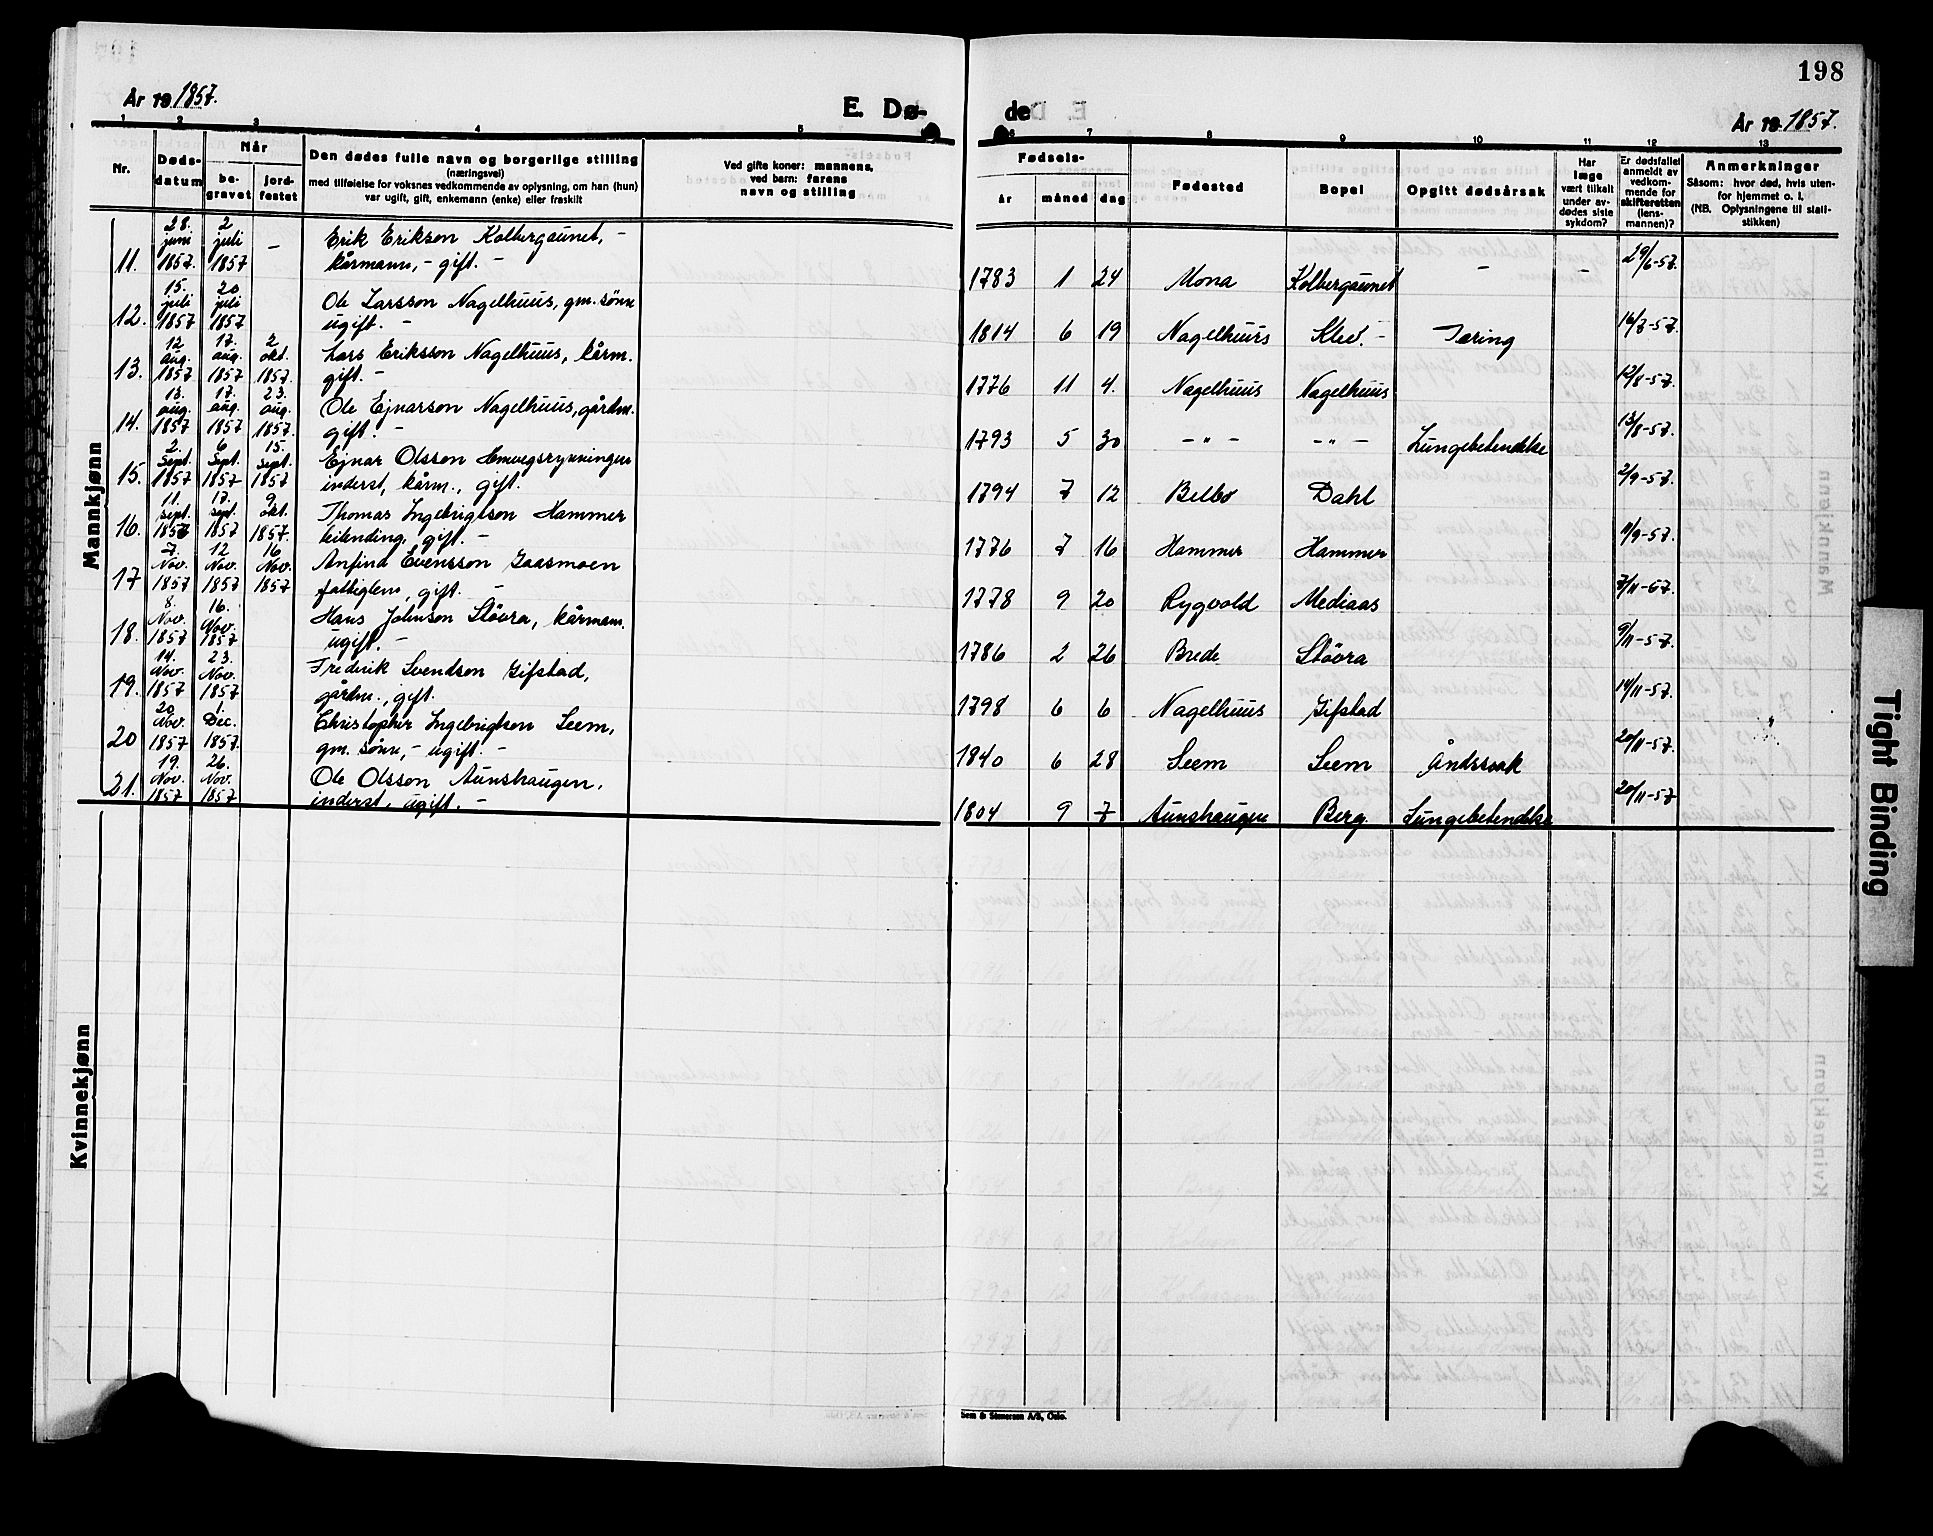 198
År 19 1857.
E. Dø-
de
År 19 1857.
1 2 3 4 5 6 7 8 9 10 11 12 13
Nr.
Døds-
datum
Når
be-
gravet
jord-
festet
Den dødes fulle navn og borgerlige stilling
(næringsvei)
med tilføielse for voksnes vedkommende av oplysning, om han (hun)
var ugift, gift, enkemann (enke) eller fraskilt
Ved gifte koner: mannens,
ved barn: farens
navn og stilling
Fødsels-
år måned dag
Fødested
Bopel
Opgitt dødsårsak
Har
læge
vært tilkalt
under av-
dødes siste
sykdom?
Er dødsfallet
anmeldt av
vedkom-
mende for
skifteretten
(lens-
mannen)?
Anmerkninger
Såsom: hvor død, hvis uten-
for hjemmet o. l.
(NB. Oplysningene til stati-
stikken)
Mannkjønn
11. 28. juni 1857. 2 juli 1857 - Erik Erikson Kolbergaunet, -
kårmann, - gift. -
1783 1 24 Mona Kolbergaunet - - 29/6-57.
12. 15. juli 1857 20 juli 1857 Ole Larsson Nagelhuus, gm. sönn
ugift. -
1814 6 19 Nagelhuus Klev. - Tæring 16/7-57.
13. 12 aug. 1857 17. aug. 1857 2 okt. 1857. Lars Eriksson Nagelhuus, kårm.
gift. -
1776 11 4. Nagelhuus Nagelhuus 12/8-57.
14. 13. aug. 1857 17. aug. 1857 23. aug. 1857. Ole Ejnarson Nagelhuus, gårdm.
gift. -
1793 5 30 - " - - " - Lungebetendelse 13/8-57.
15. 2. Sept. 1857 6 Sept. 1857 15. Sept. 1857 Ejnar Olsson Hemvegsrydningen
inderst, kårm., gift.
1794 7 12 Belbo Dahl 2/9-57.
16. 11. Sept. 1857 17. Sept. 1857 9 okt. 1857. Thomas Ingebrigtson Hammer
leilending, gift. -
1776 7 16 Hammer Hammer 11/9-57.
17 7. Nov. 1857 12 Nov. 1857 16 Nov. 1857 Anfind Evensson Gaasmoen
fattiglem, gift. -
1778 9 20 Rygvold Mediaas 7/11-67.
18. 8. Nov. 1857 16. Nov. 1857 Hans Johnson Stövra, kårmann.
ugift. -
1786 2 26 Brede Stövra 9/11-57.
19. 14. Nov. 1857 23. Nov. 1857 Fredrik Svendson Gifstad,
gårdm., gift.
1798 6 6 Nagelhuus Gifstad 14/11-57.
20 20. Nov. 1857 1. Dec. 1857. Christopher Ingebrigtson Seem,
gm. sönn, - ugift. -
1840 6 28 Seem Seem Åndssvak 20/11-57.
21. 19. Nov. 1857 26. Nov. 1857 Ole Olsson Aunshaugen,
inderst, ugift. -
1804 9 7 Aunshaugen Berg Lungebetendelse 20/11-57
Kvinnekjønn
Sem & Stenersen A/S, Oslo.
Tight Binding